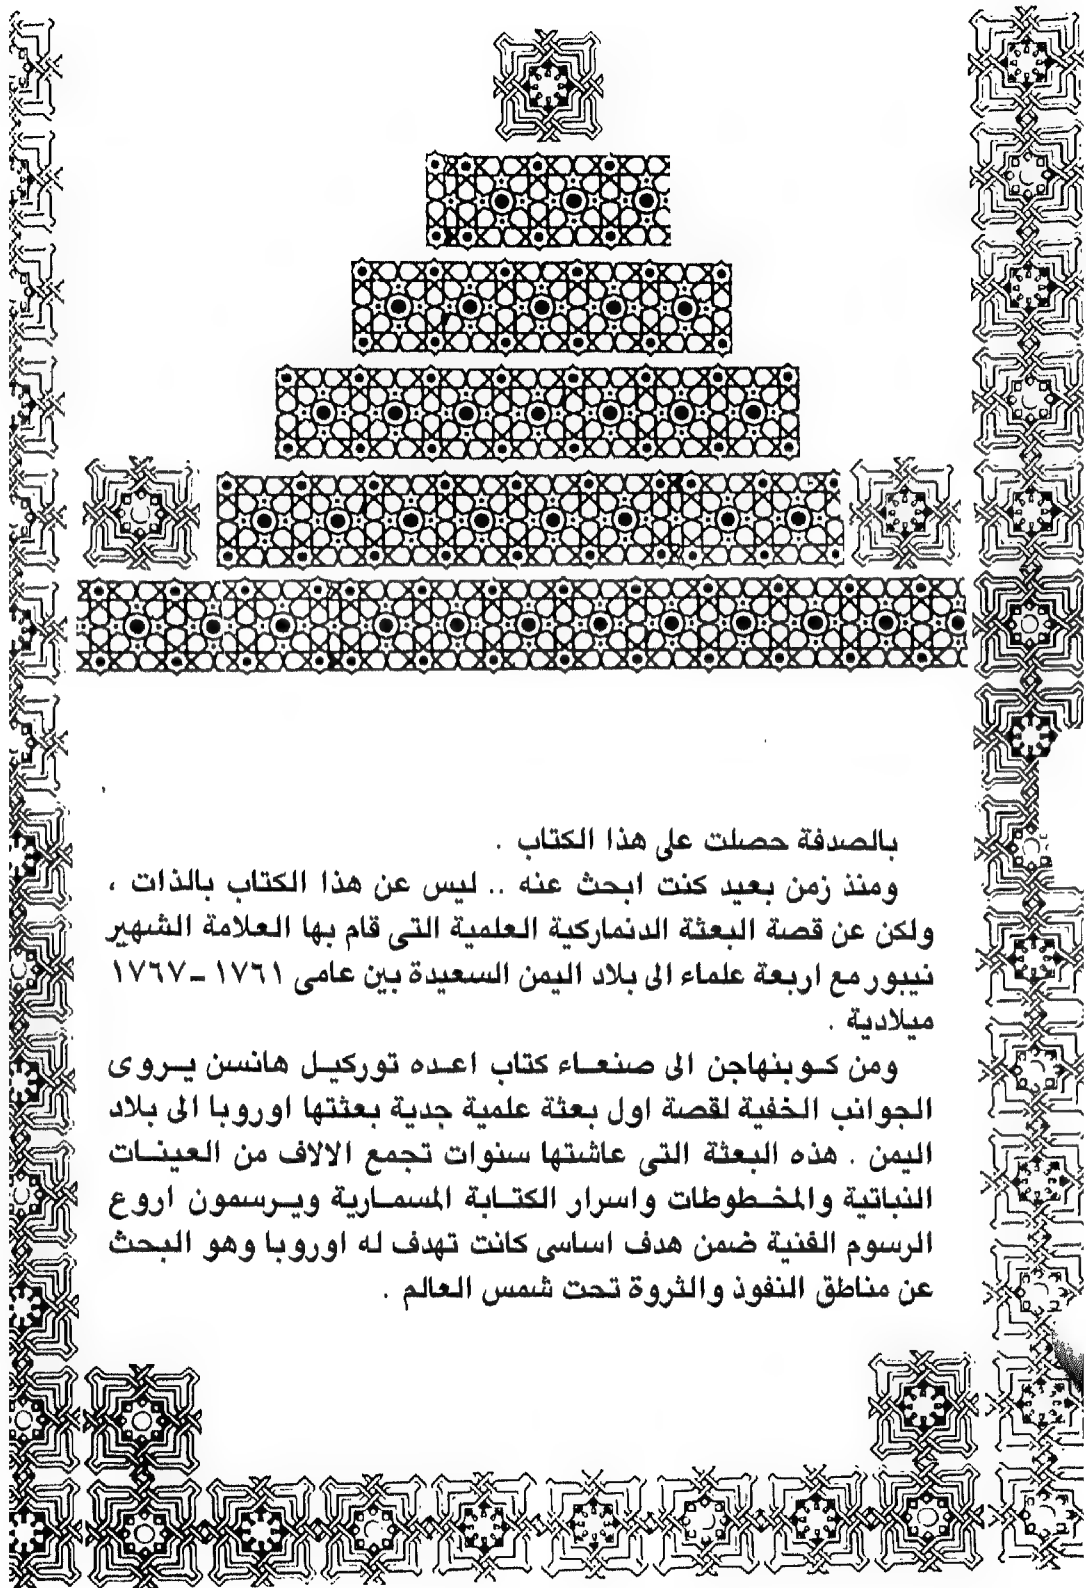 بالصدفة حصلت على هذا الكتاب .
ومنذ زمن بعيد كنت ابحث عنه .. ليس عن هذا الكتاب بالذات ،
ولكن عن قصة البعثة الدنماركية العلمية التى قام بها العلامة الشهير
نيبور مع اربعة علماء الى بلاد اليمن السعيدة بين عامى ١٧٦١ - ١٧٦٧
ميلادية .
ومن كوبنهاجن الى صنعاء كتاب اعده توركيل هانسن يروى
الجوانب الخفية لقصة اول بعثة علمية جدية بعثتها اوروبا الى بلاد
اليمن . هذه البعثة التى عاشتها سنوات تجمع الالاف من العينات
النباتية والمخطوطات واسرار الكتابة المسمارية ويرسمون اروع
الرسوم الفنية ضمن هدف اساسى كانت تهدف له اوروبا وهو البحث
عن مناطق النفوذ والثروة تحت شمس العالم .